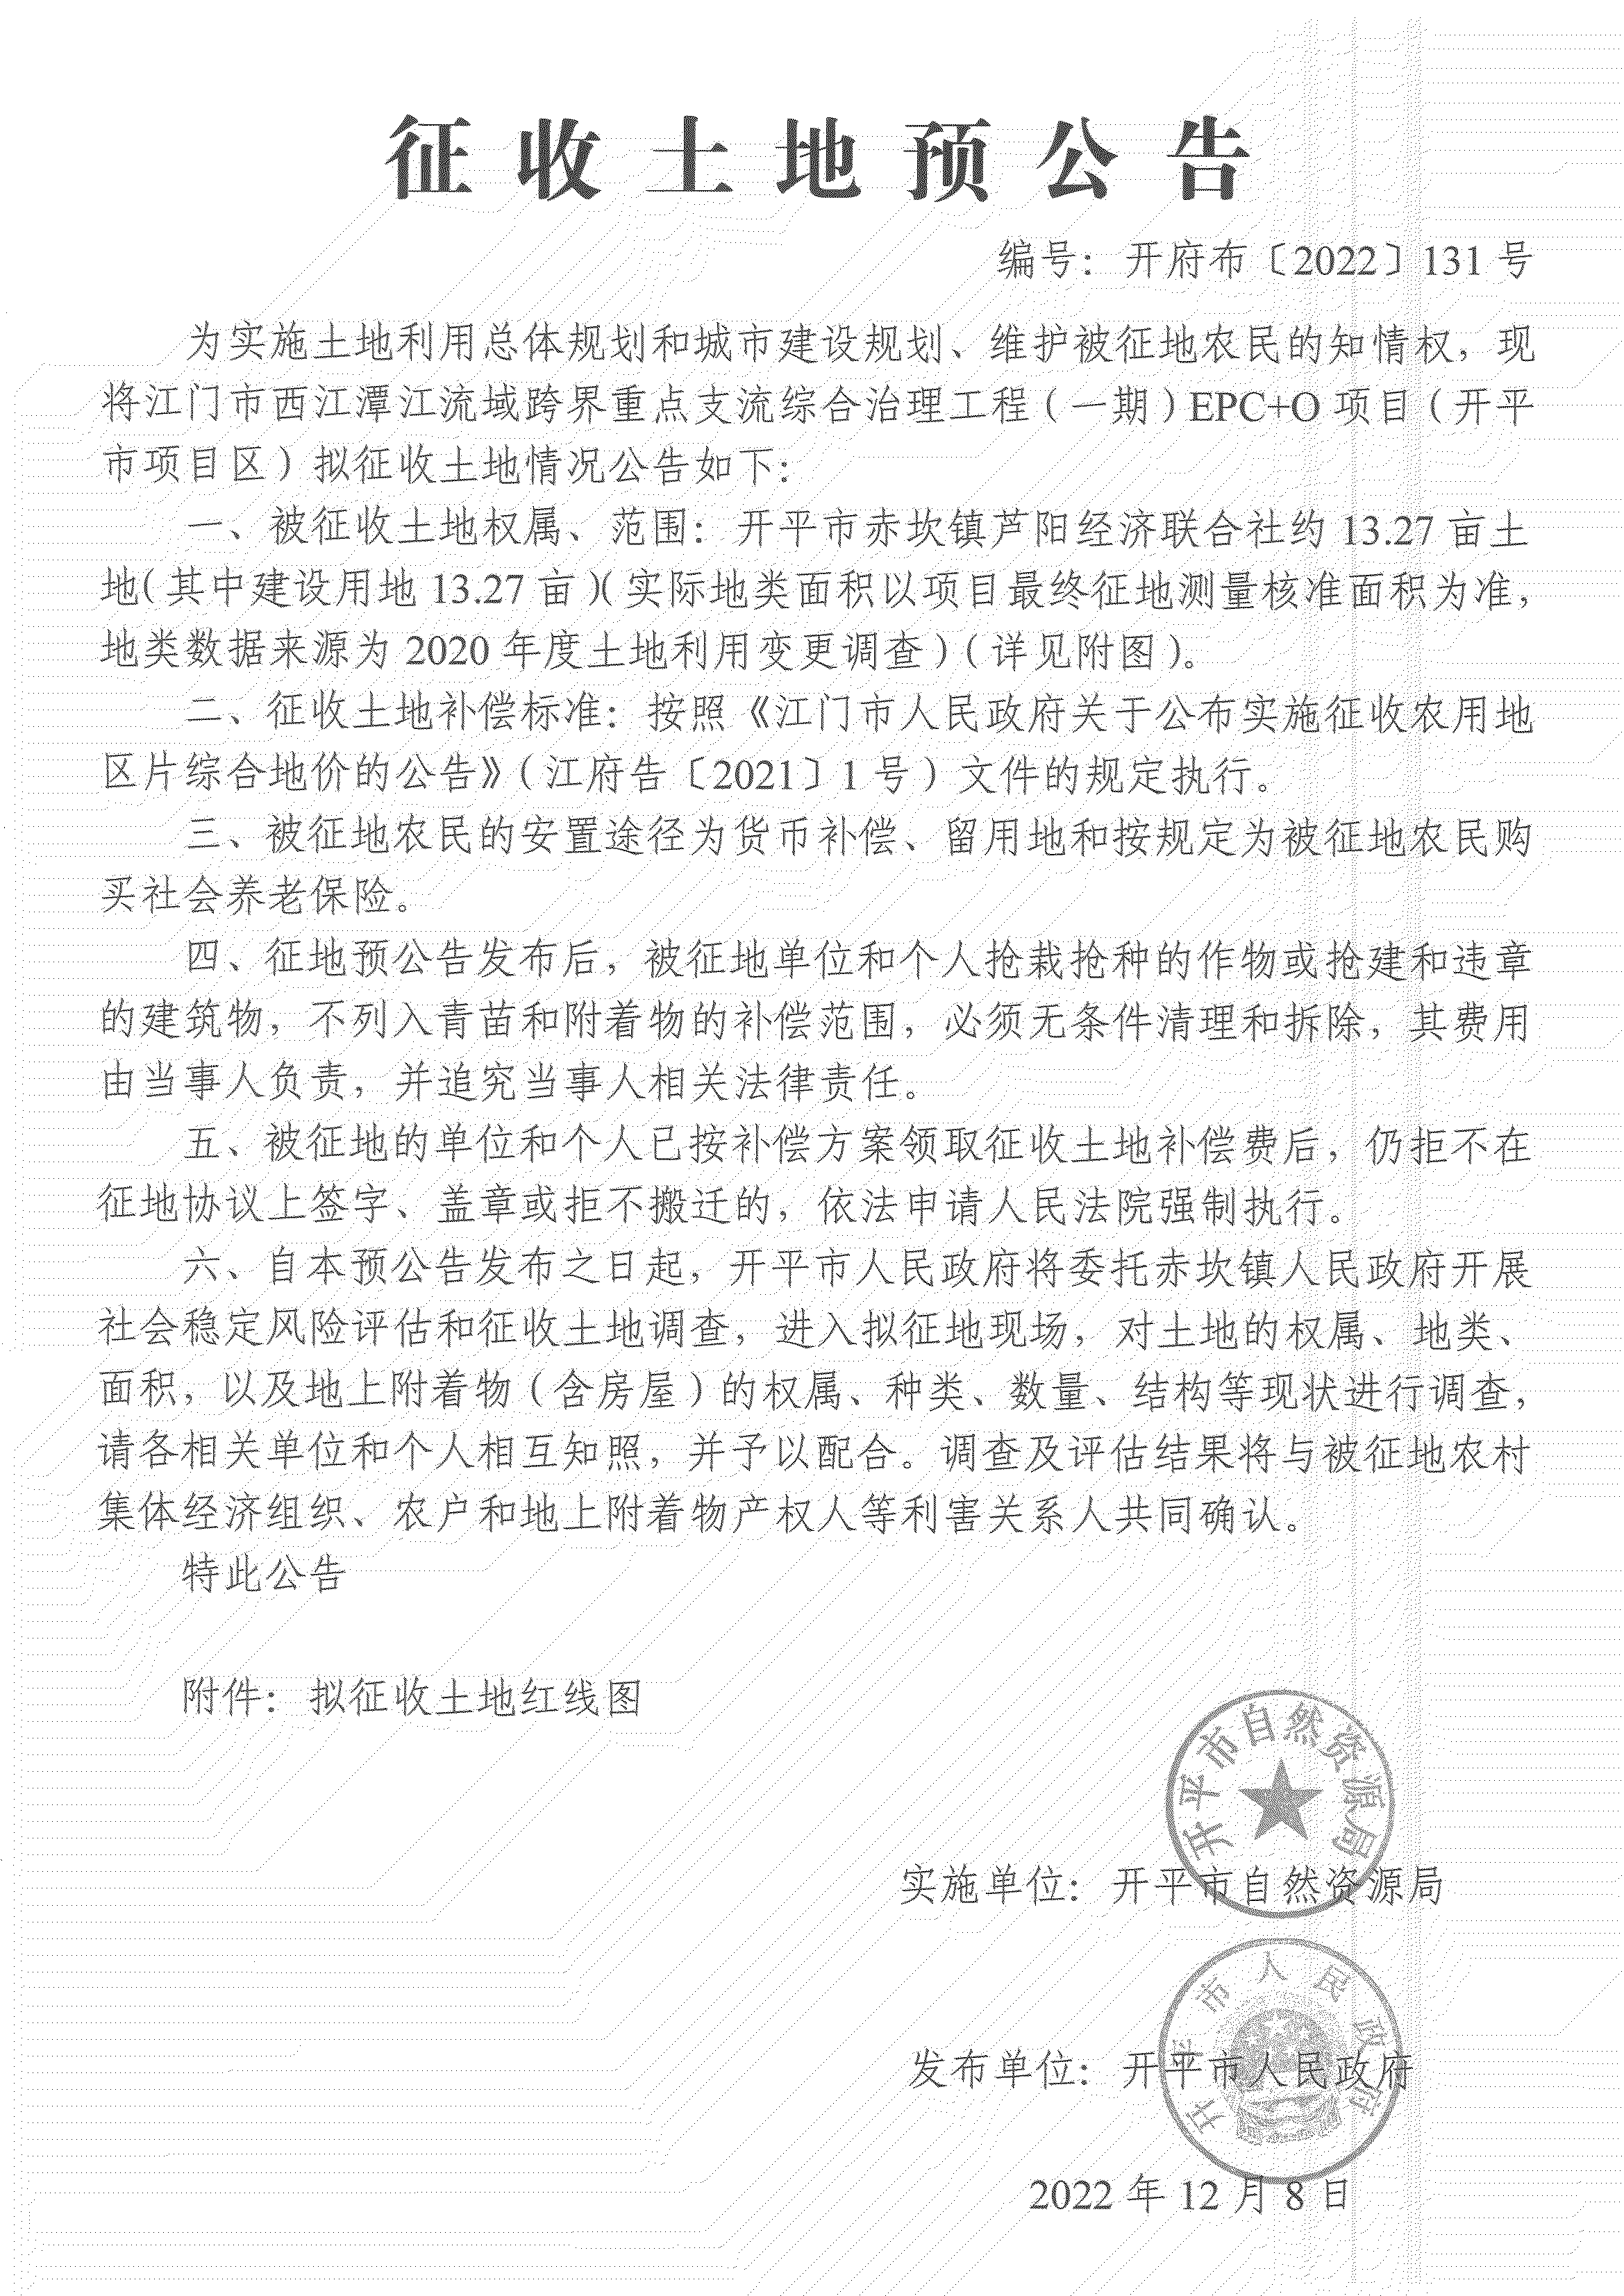 征收土地预公告
编号：开府布〔2022〕131号
为实施土地利用总体规划和城市建设规划、维护被征地农民的知情权，现
将江门市西江潭江流域跨界重点支流综合治理工程（一期）EPC+O项目（开平
市项目区）拟征收土地情况公告如下：
一、被征收土地权属、范围：开平市赤坎镇芦阳经济联合社约13.27亩土
地（其中建设用地13.27亩）（实际地类面积以项目最终征地测量核准面积为准，
地类数据来源为2020年度土地利用变更调查）（详见附图）。
二、征收土地补偿标准：按照《江门市人民政府关于公布实施征收农用地
区片综合地价的公告》（江府告〔2021〕1号）文件的规定执行。
三、被征地农民的安置途径为货币补偿、留用地和按规定为被征地农民购
买社会养老保险。
四、征地预公告发布后，被征地单位和个人抢栽抢种的作物或抢建和违章
的建筑物，不列入青苗和附着物的补偿范围，必须无条件清理和拆除，其费用
由当事人负责，并追究当事人相关法律责任。
五、被征地的单位和个人已按补偿方案领取征收土地补偿费后，仍拒不在
征地协议上签字、盖章或拒不搬迁的，依法申请人民法院强制执行。
六、自本预公告发布之日起，开平市人民政府将委托赤坎镇人民政府开展
社会稳定风险评估和征收土地调查，进入拟征地现场，对土地的权属、地类、
面积，以及地上附着物（含房屋）的权属、种类、数量、结构等现状进行调查，
请各相关单位和个人相互知照，并予以配合。调查及评估结果将与被征地农村
集体经济组织、农户和地上附着物产权人等利害关系人共同确认。
特此公告
附件：拟征收土地红线图
开平市自然资源局
实施单位：开平市自然资源局
开平市人民政府
发布单位：开平市人民政府
2022年12月8日